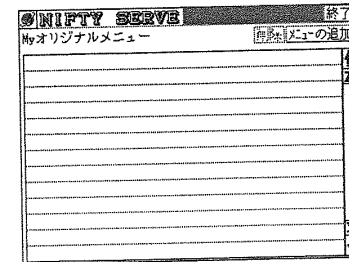 NIFTY SERVE 終了
Myオリジナルメニュー 削除 メニューの追加